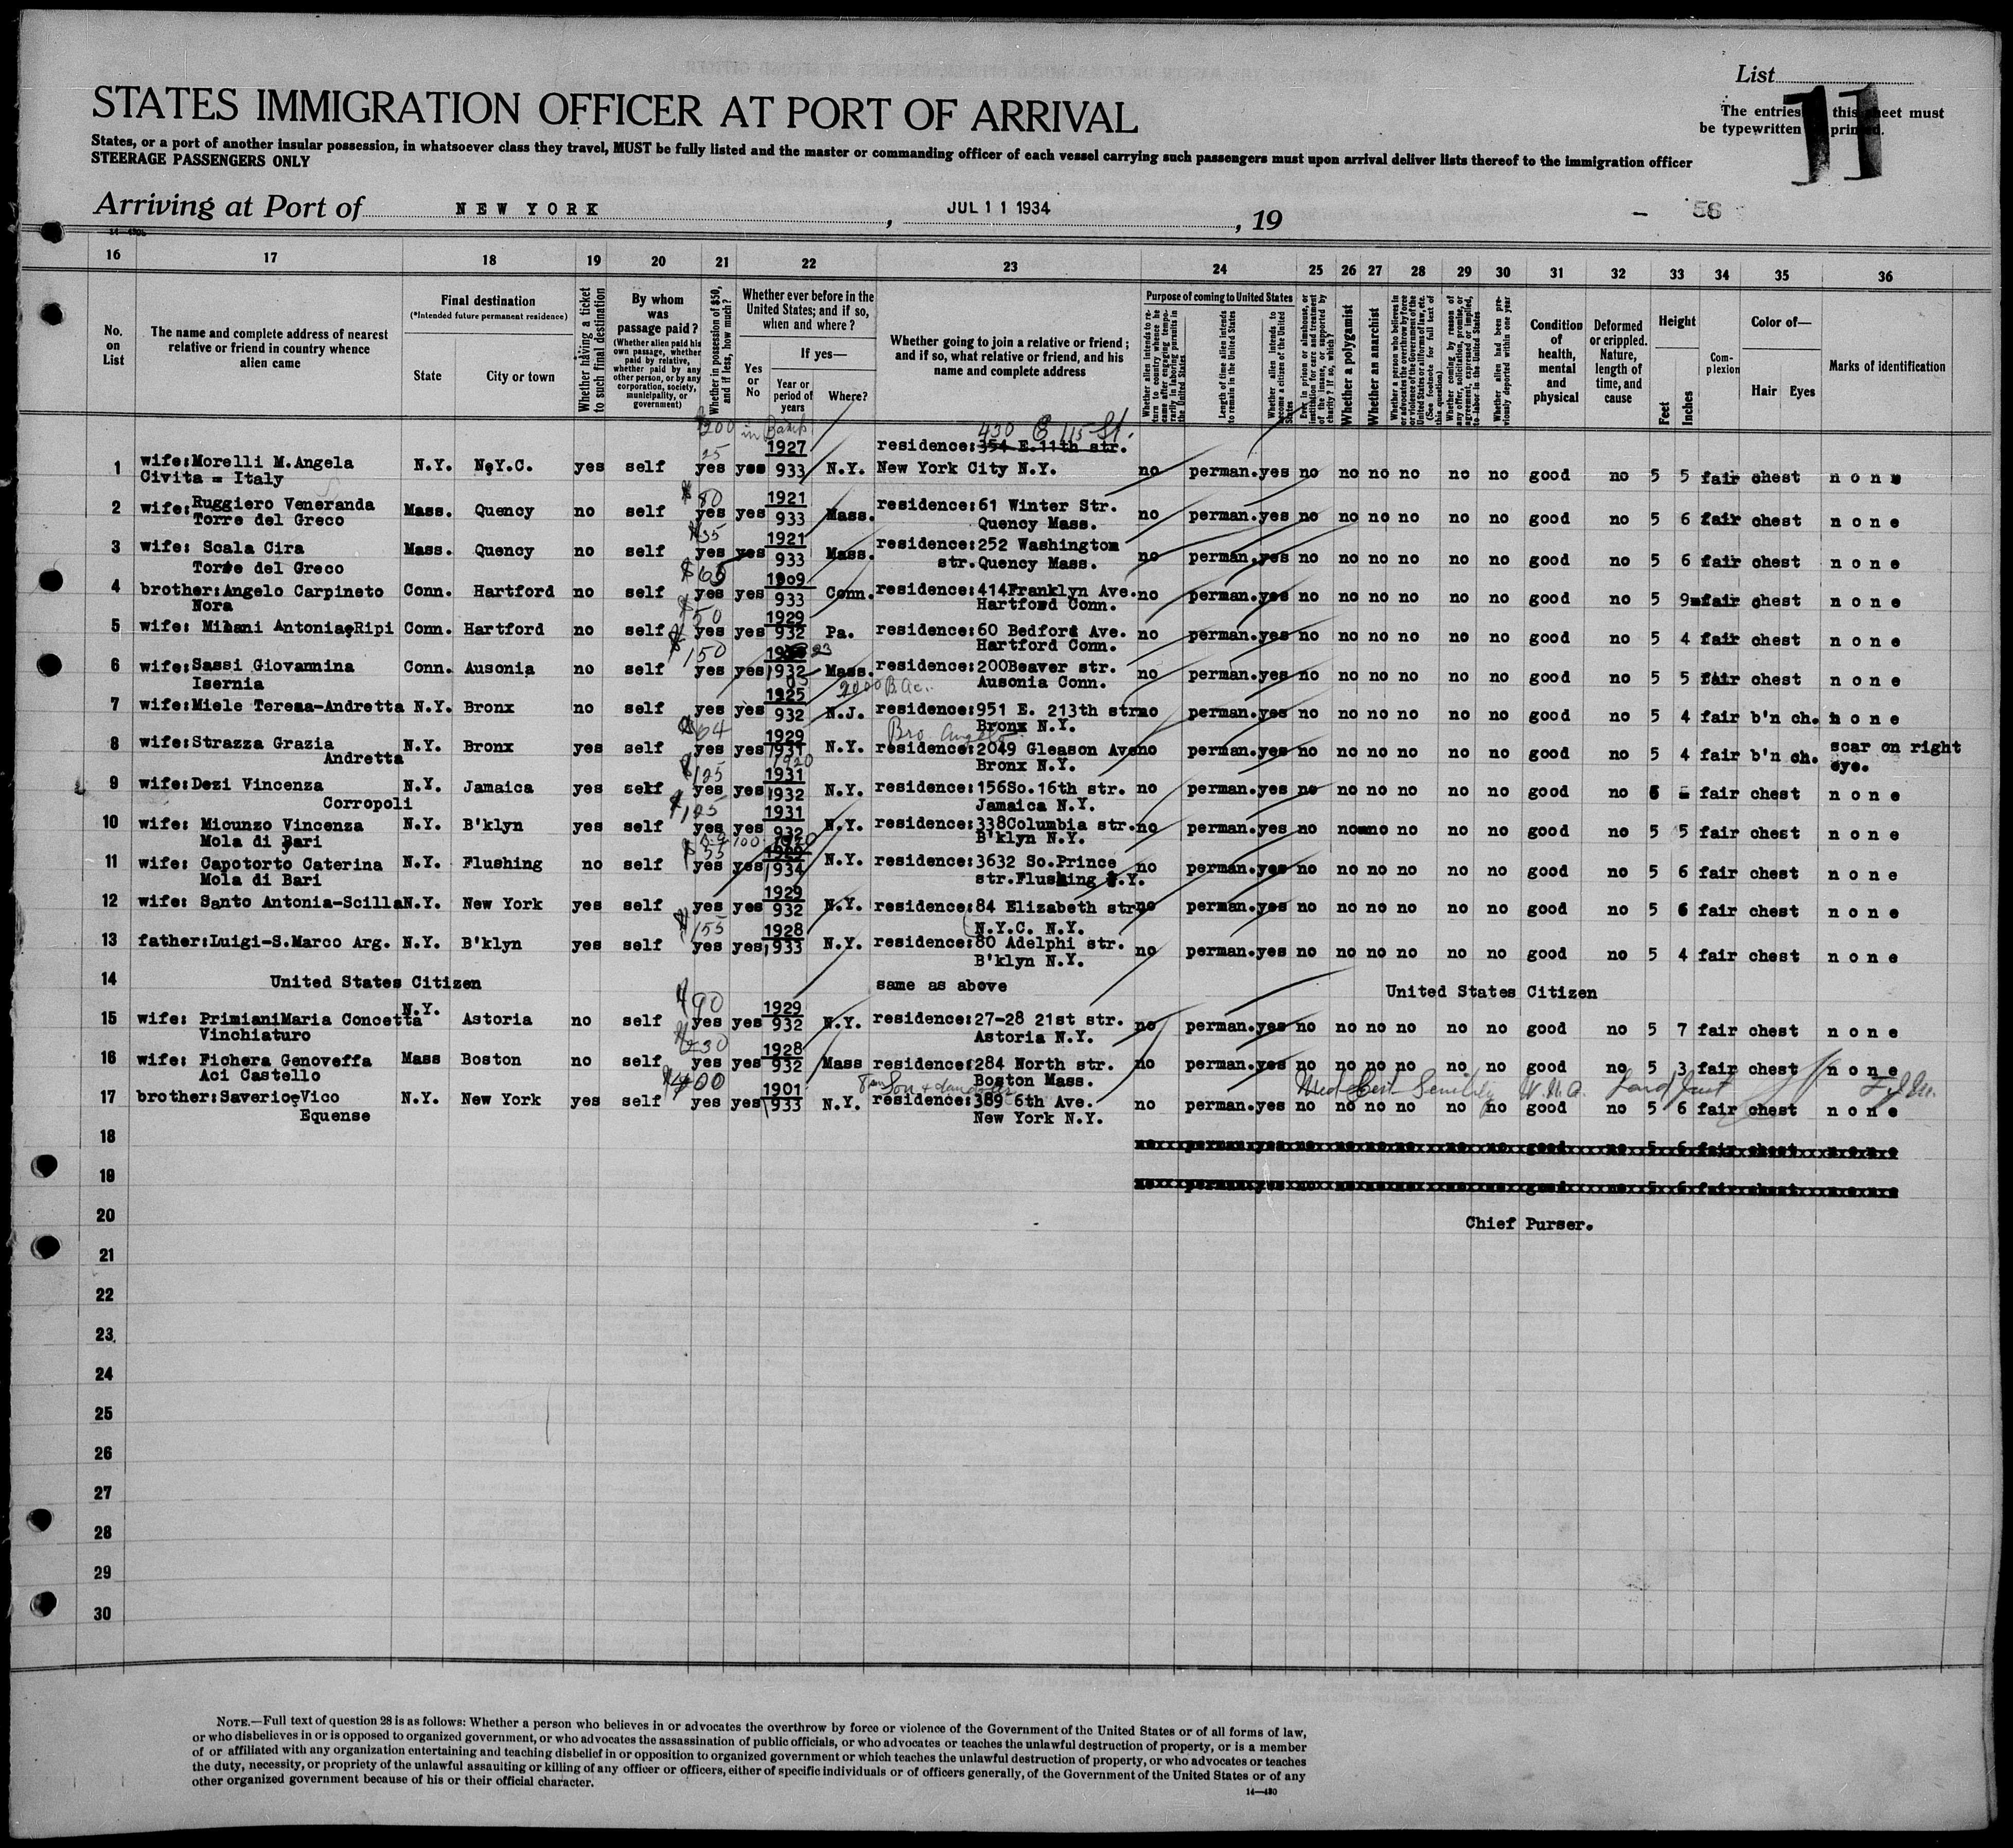 List
11
The entries this sheet must
be typewritten printed.
STATES IMMIGRATION OFFICER AT PORT OF ARRIVAL
States, or a port of another insular possession, in whatsoever class they travel, MUST be fully listed and the master or commanding officer of each vessel carrying such passengers must upon arrival deliver lists thereof to the immigration officer
STEERAGE PASSENGERS ONLY
Arriving at Port of NEW YORK, JUL 11 1934, 19
- 56
16 17 18 19 20 21 22 23 24 25 26 27 28 29 30 31 32 33 34 35 36
No. on List
The name and complete address of nearest relative or friend in country whence alien came
Final destination
(*Intended future permanent residence)
State
City or town
Whether having a ticket to such final destination
By whom was passage paid?
(Whether alien paid his own passage, whether paid by relative, whether paid by any other person, or by any corporation, society, municipality, or government)
Whether in possession of $50, and if less, how much?
Whether ever before in the United States; and if so, when and where?
Yes or No
If yes—
Year or period of years
Where?
Whether going to join a relative or friend; and if so, what relative or friend, and his name and complete address
Purpose of coming to United States
Whether alien intends to return to country whence he came after engaging temporarily in laboring pursuits in the United States
Length of time alien intends to remain in the United States
Whether alien intends to become a citizen of the United States
Ever in prison or almshouse, or institution for care and treatment of the insane, or supported by charity? If so, which?
Whether a polygamist
Whether an anarchist
Whether a person who believes in or advocates the overthrow by force or violence of the Government of the United States or all forms of law, etc. (See footnote for full text of this question)
Whether coming by reason of any offer, solicitation, promise, or agreement, expressed or implied, to labor in the United States
Whether alien had been previously deported within one year
Condition of health, mental and physical
Deformed or crippled. Nature, length of time, and cause
Height
Feet
Inches
Complexion
Color of—
Hair Eyes
Marks of identification
$200 in Bank 430 E 115 St.
25 1927 residence:354 E.11th str.
1 wife:Morelli M.Angela N.Y. N.Y.C. yes self yes yes 933 N.Y. New York City N.Y. no perman. yes no no no no no no good no 5 5 fair chest none
Civita = Italy
$80 1921
2 wife:Ruggiero Veneranda Mass. Quency no self yes yes 933 Mass. residence:61 Winter Str. no perman. yes no no no no no no good no 5 6 fair chest none
Torre del Greco Quency Mass.
$35 1921
3 wife: Scala Cira Mass. Quency no self yes yes 933 Mass. residence:252 Washington no perman. yes no no no no no no good no 5 6 fair chest none
Torre del Greco str.Quency Mass.
$65 1909
4 brother:Angelo Carpineto Conn. Hartford no self yes yes 933 Conn. residence:414Franklyn Ave. no perman. yes no no no no no no good no 5 9 fair chest none
Nora Hartford Conn.
$50 1929
5 wife: Milani Antonia Ripi Conn. Hartford no self yes yes 932 Pa. residence:60 Bedford Ave. no perman. yes no no no no no no good no 5 4 fair chest none
Hartford Conn.
$150 23
6 wife:Sassi Giovannina Conn. Ausonia no self yes yes 1932 Mass. residence:200Beaver str. no perman. yes no no no no no no good no 5 5 fair chest none
Isernia Ausonia Conn.
1925 2000 B.Ac.
7 wife:Miele Teresa-Andretta N.Y. Bronx no self yes yes 932 N.J. residence:951 E. 213th str. no perman. yes no no no no no no good no 5 4 fair b'n ch. none
Bronx N.Y.
$64 1929 Bro Angelo
8 wife:Strazza Grazia N.Y. Bronx yes self yes yes 1931 N.Y. residence:2049 Gleason Ave no perman. yes no no no no no no good no 5 4 fair b'n ch. scar on right eye.
Andretta Bronx N.Y.
$125 1920 1931
9 wife:Dezi Vincenza N.Y. Jamaica yes self yes yes 1932 N.Y. residence:156So.16th str. no perman. yes no no no no no no good no 6 - fair chest none
Corropoli Jamaica N.Y.
$125 1931
10 wife: Micunzo Vincenza N.Y. B'klyn yes self yes yes 932 N.Y. residence:338Columbia str. no perman. yes no no no no no no good no 5 5 fair chest none
Mola di Bari B'klyn N.Y.
$55 1920
11 wife: Capotorto Caterina N.Y. Flushing no self yes yes 1934 N.Y. residence:3632 So.Prince no perman. yes no no no no no no good no 5 6 fair chest none
Mola di Bari str.Flushing N.Y.
1929
12 wife: Santo Antonia-Scilla N.Y. New York yes self yes yes 932 N.Y. residence:84 Elizabeth str no perman. yes no no no no no no good no 5 6 fair chest none
N.Y.C. N.Y.
$155 1928
13 father:Luigi-S.Marco Arg. N.Y. B'klyn yes self yes yes 1933 N.Y. residence:80 Adelphi str. no perman. yes no no no no no no good no 5 4 fair chest none
B'klyn N.Y.
14 United States Citizen same as above United States Citizen
$90 1929
15 wife: PrimianiMaria Concetta N.Y. Astoria no self yes yes 932 N.Y. residence:27-28 21st str. no perman. yes no no no no no no good no 5 7 fair chest none
Vinchiaturo Astoria N.Y.
$30 1928
16 wife: Fichera Genoveffa Mass Boston no self yes yes 932 Mass residence:284 North str. no perman. yes no no no no no no good no 5 3 fair chest none
Aci Castello Boston Mass.
$400 1901 Son + daughter Med Cert Senility
17 brother:Saverio Vico N.Y. New York yes self yes yes 1933 N.Y. residence:389 6th Ave. no perman. yes no no no no no no good no 5 6 fair chest none
Equense New York N.Y.
18 no perman yes no no no no no no good no 5 6 fair chest none
19 no perman yes no no no no no no good no 5 6 fair chest none
20 Chief Purser.
21
22
23
24
25
26
27
28
29
30
NOTE.—Full text of question 28 is as follows: Whether a person who believes in or advocates the overthrow by force or violence of the Government of the United States or of all forms of law,
or who disbelieves in or is opposed to organized government, or who advocates the assassination of public officials, or who advocates or teaches the unlawful destruction of property, or is a member
of or affiliated with any organization entertaining and teaching disbelief in or opposition to organized government or which teaches the unlawful destruction of property, or who advocates or teaches
the duty, necessity, or propriety of the unlawful assaulting or killing of any officer or officers, either of specific individuals or of officers generally, of the Government of the United States or of any
other organized government because of his or their official character.
14—430